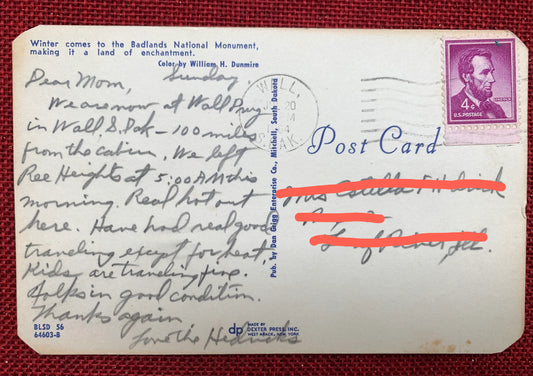 Winter comes to the Badlands National Monument,
making it a land of enchantment.
Color by William H. Dunmire
Dear Mom, Sunday.
We are now at Wall Drug
in Wall S. Dak - 100 miles
from the cabin, We left
Ree Heights at 5:00 AM this
morning. Real hot out
here. Have had real good
traveling except for heat,
Kids are traveling fine.
Folks in good condition.
Thanks again
Love the Hedricks
BLSD 56
64603-B
Pub. by Dan Grigg Enterprise Co., Mitchell, South Dakota
WALL,
20
S. DAK.
4¢
U.S. POSTAGE
Post Card
dp
MADE BY
DEXTER PRESS, INC.
WEST NYACK, NEW YORK